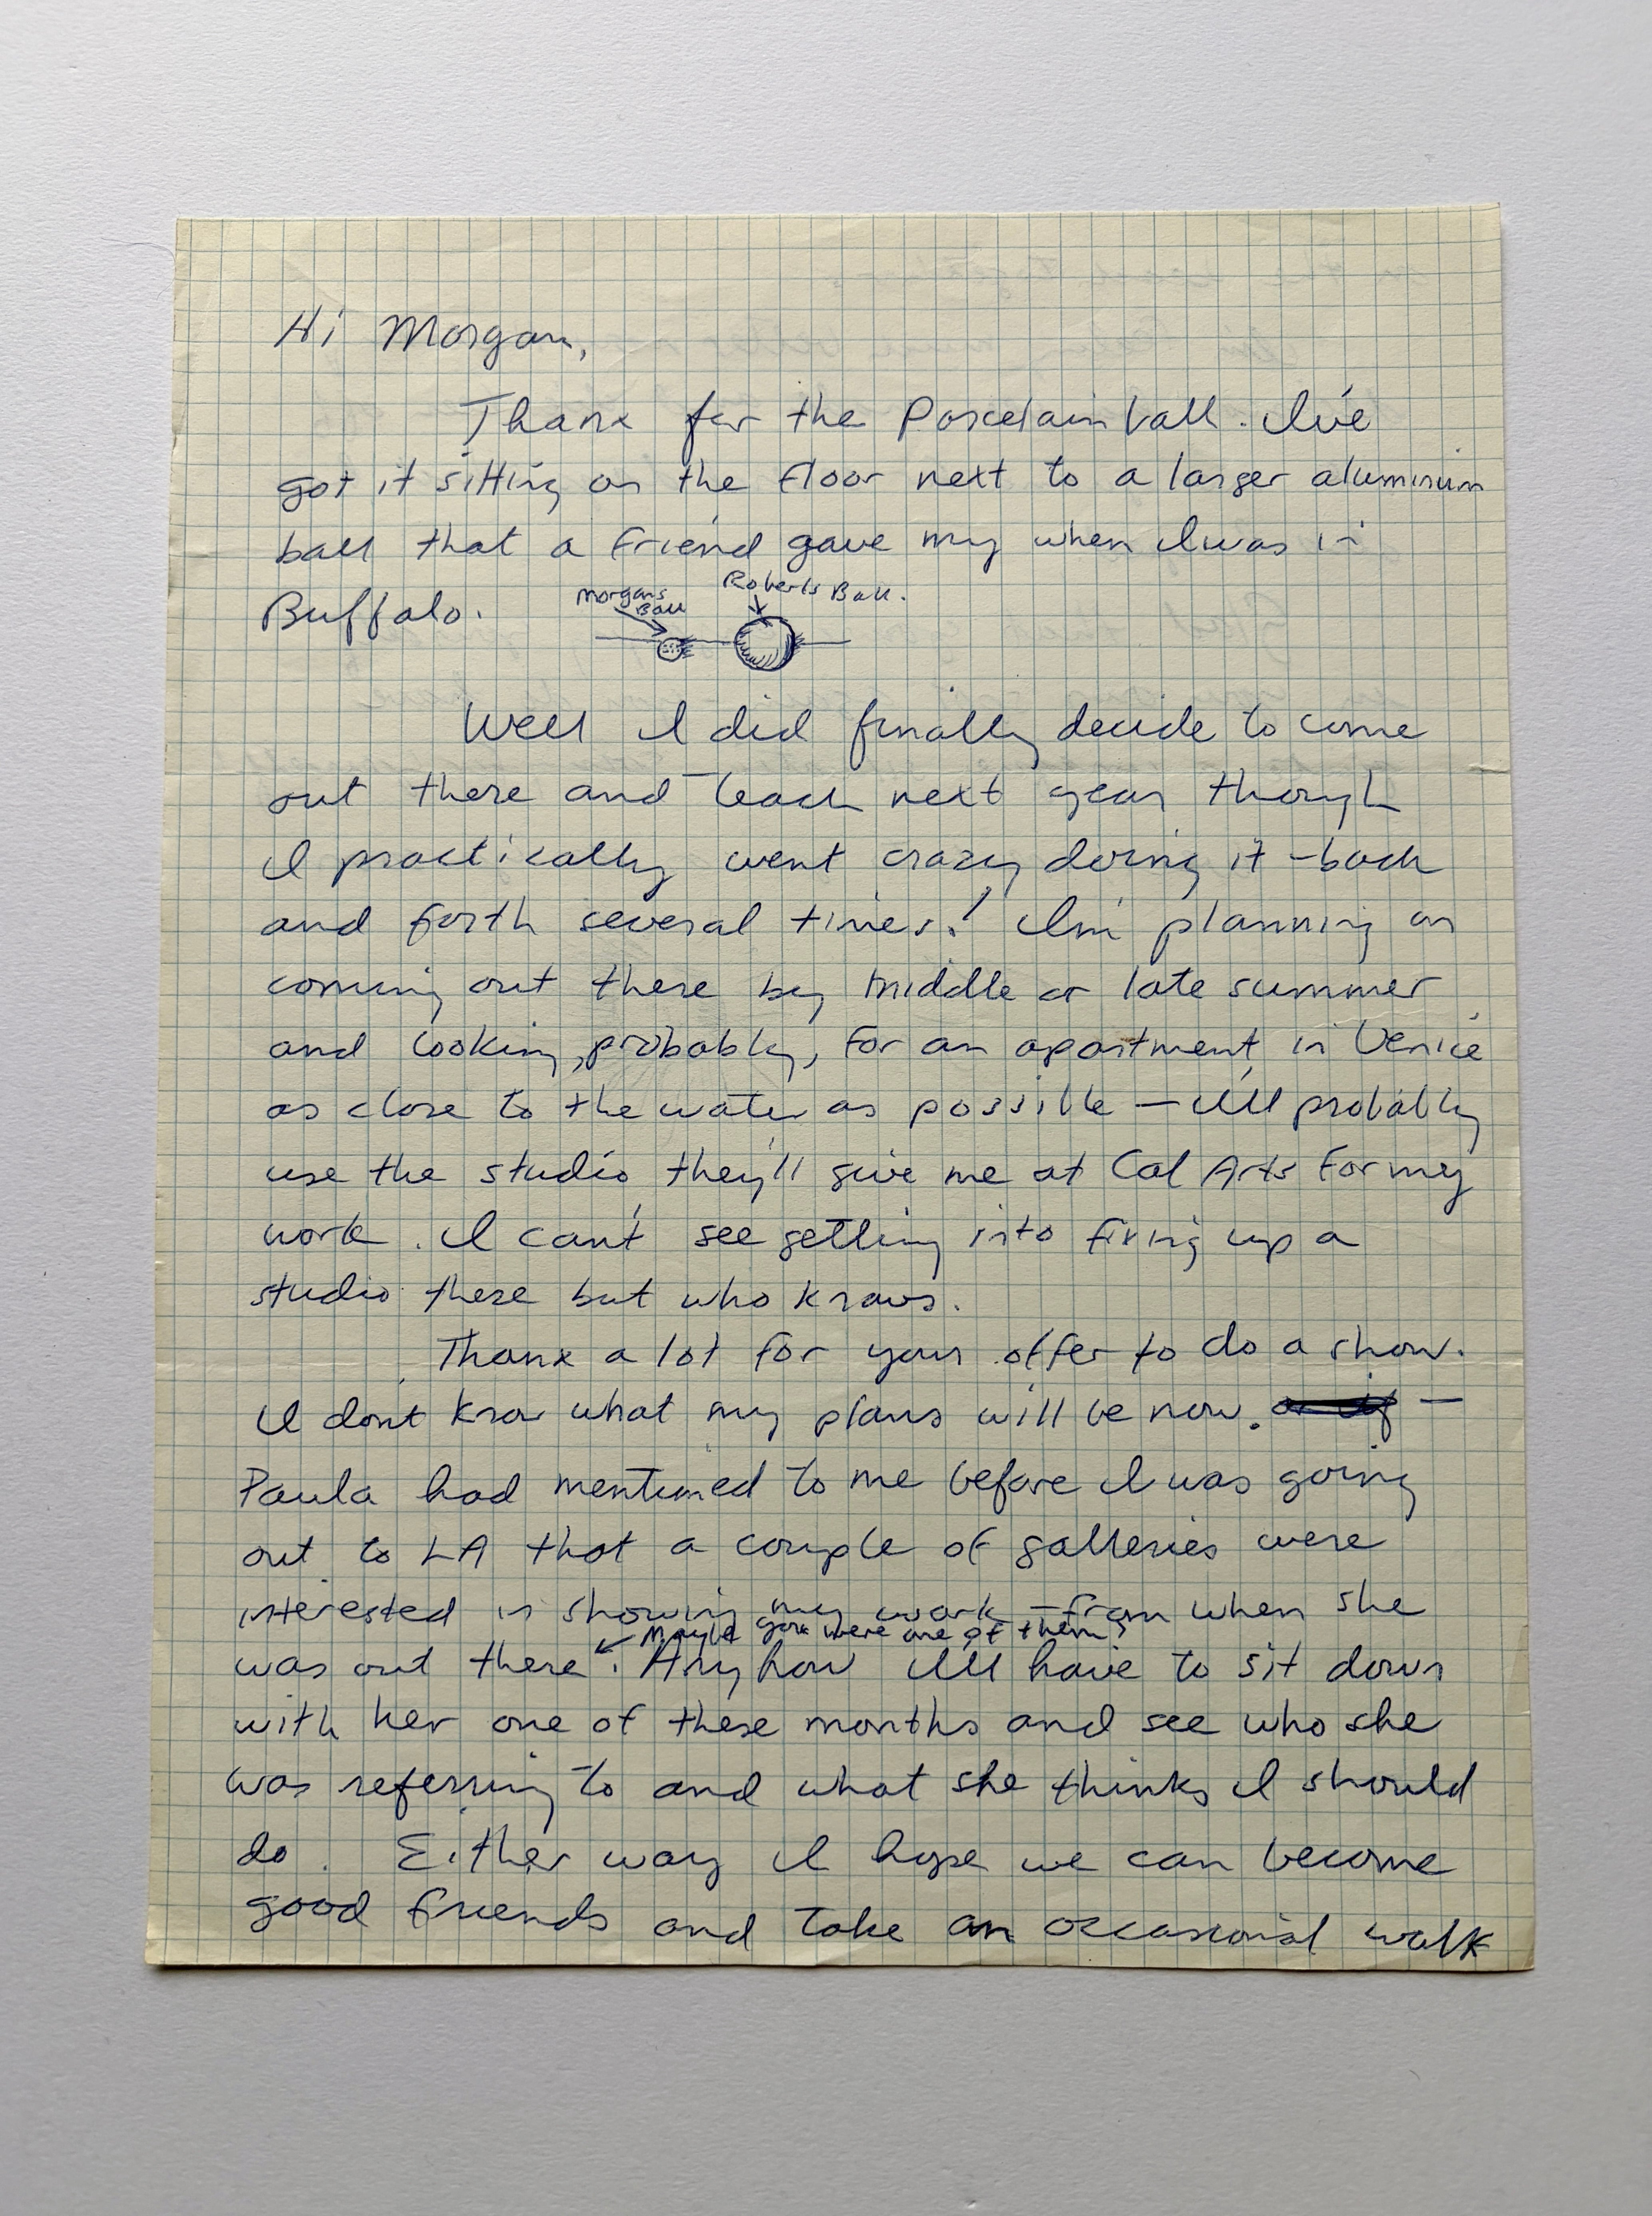 Hi Morgan,
Thanx for the Porcelain ball. I've
got it sitting on the floor next to a larger aluminum
ball that a friend gave my when I was in
Buffalo.
Morgans
Ball
Roberts Ball.
Well I did finally decide to come
out there and teach next year though
I practically went crazy doing it - back
and forth several times! I'm planning on
coming out there by middle or late summer
and looking, probably, for an apartment in Venice
as close to the water as possible — I'll probably
use the studio they'll give me at Cal Arts for my
work. I can't see getting into fixing up a
studio there but who knows.
Thanx a lot for your offer to do a show.
I don't know what my plans will be now. —
Paula had mentioned to me before I was going
out to LA that a couple of galleries were
interested in showing my work - from when she
Maybe you were one of them?
was out there. Anyhow I'll have to sit down
with her one of these months and see who she
was referring to and what she thinks I should
do. Either way I hope we can become
good friends and take an occasional walk